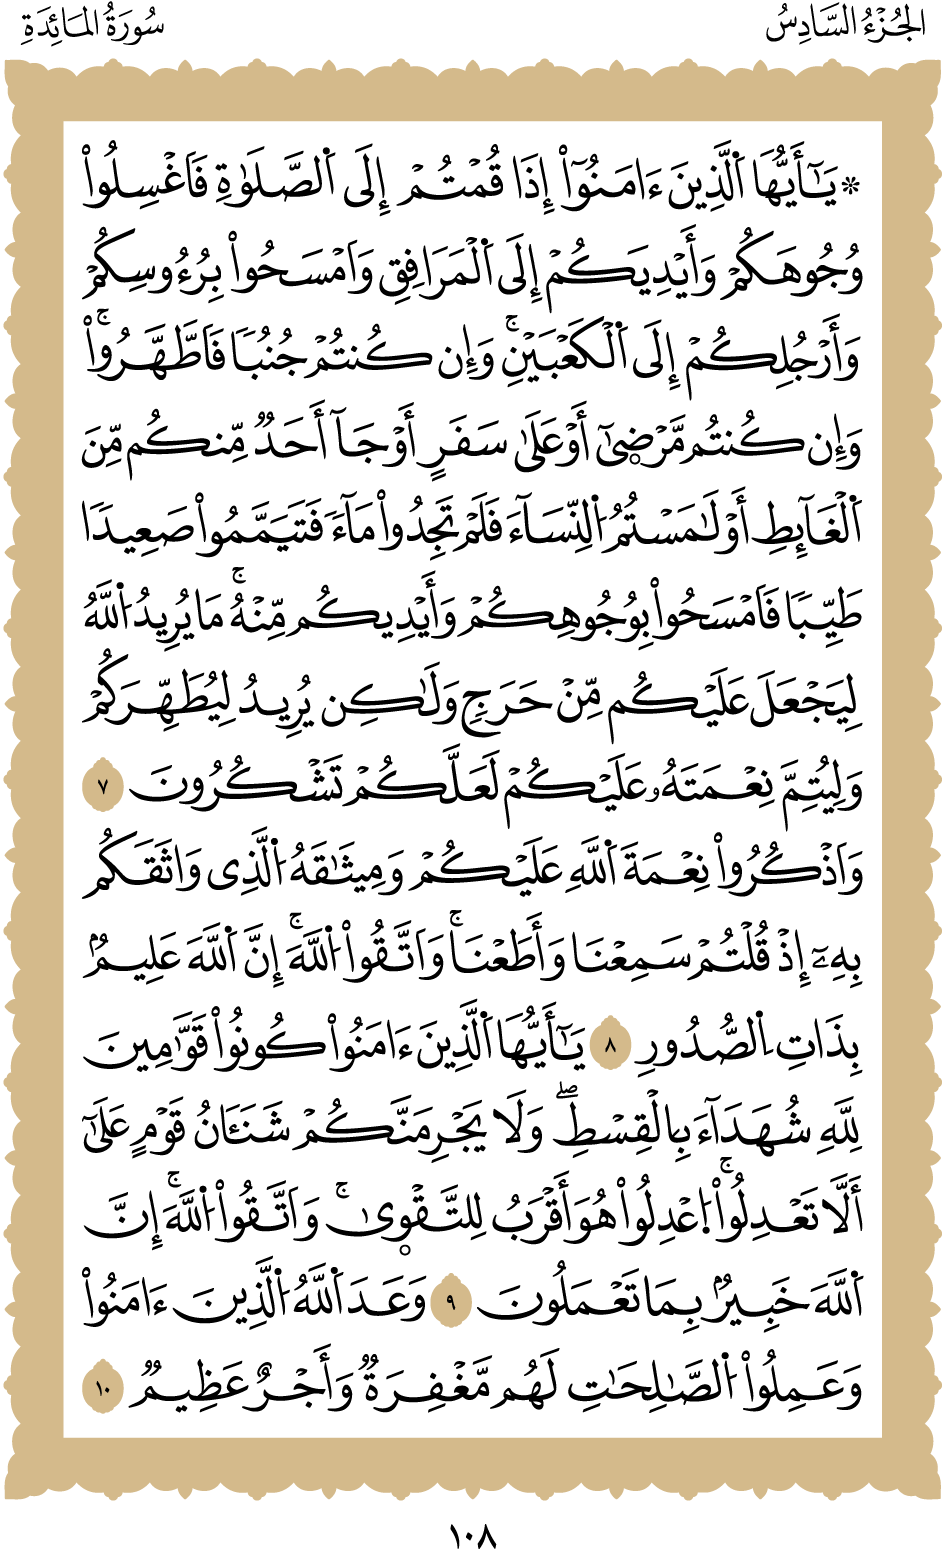 الجُزْءُ السَّادِسُ
سُورَةُ المَائِدَةِ
* يَـٰٓأَيُّهَا اَ۬لَّذِينَ ءَامَنُوٓاْ إِذَا قُمْتُمْ إِلَى اَ۬لصَّلَوٰةِ فَاَغْسِلُواْ
وُجُوهَكُمْ وَأَيْدِيَكُمْ إِلَى اَ۬لْمَرَافِقِ وَاَمْسَحُواْ بِرُءُوسِكُمْ
وَأَرْجُلِكُمْ إِلَى اَ۬لْكَعْبَيْنِۚ وَإِن كُنتُمْ جُنُبٗا فَاَطَّهَّرُواْۚ
وَإِن كُنتُم مَّرْضۭيٰٓ أَوْ عَلَىٰ سَفَرٍ أَوْ جَآ أَحَدٞ مِّنكُم مِّنَ
اَ۬لْغَآئِطِ أَوْ لَـٰمَسْتُمُ اُ۬لنِّسَآءَ فَلَمْ تَجِدُواْ مَآءٗ فَتَيَمَّمُواْ صَعِيدٗا
طَيِّبٗا فَاَمْسَحُواْ بِوُجُوهِكُمْ وَأَيْدِيكُم مِّنْهُۚ مَا يُرِيدُ اُ۬للَّهُ
لِيَجْعَلَ عَلَيْكُم مِّنْ حَرَجٖ وَلَـٰكِن يُرِيدُ لِيُطَهِّرَكُمْ
وَلِيُتِمَّ نِعْمَتَهُۥ عَلَيْكُمْ لَعَلَّكُمْ تَشْكُرُونَ ٧
وَاَذْكُرُواْ نِعْمَةَ اَ۬للَّهِ عَلَيْكُمْ وَمِيثَـٰقَهُ اُ۬لَّذِي وَاثَقَكُم
بِهِۦٓ إِذْ قُلْتُمْ سَمِعْنَا وَأَطَعْنَاۚ وَاَتَّقُواْ اُ۬للَّهَۚ إِنَّ اَ۬للَّهَ عَلِيمُۢ
بِذَاتِ اِ۬لصُّدُورِ ٨ يَـٰٓأَيُّهَا اَ۬لَّذِينَ ءَامَنُواْ كُونُواْ قَوَّٰمِينَ
لِلَّهِ شُهَدَآءَ بِالْقِسْطِۖ وَلَا يَجْرِمَنَّكُمْ شَنَـَٔانُ قَوْمٍ عَلَىٰٓ
أَلَّا تَعْدِلُواْۚ اُ۪عْدِلُواْ هُوَ أَقْرَبُ لِلتَّقْوۭيٰۚ وَاَتَّقُواْ اُ۬للَّهَۚ إِنَّ
اَ۬للَّهَ خَبِيرُۢ بِمَا تَعْمَلُونَ ٩ وَعَدَ اَ۬للَّهُ اُ۬لَّذِينَ ءَامَنُواْ
وَعَمِلُواْ اُ۬لصَّـٰلِحَـٰتِ لَهُم مَّغْفِرَةٞ وَأَجْرٌ عَظِيمٞ ١٠
١٠٨